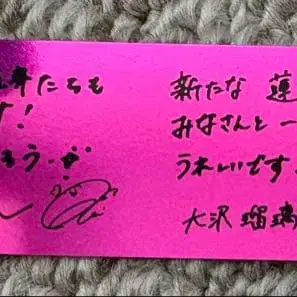 たちも
す!
もう
新たな 蓮
みなさんと 一
うれしいです
大沢 瑠璃